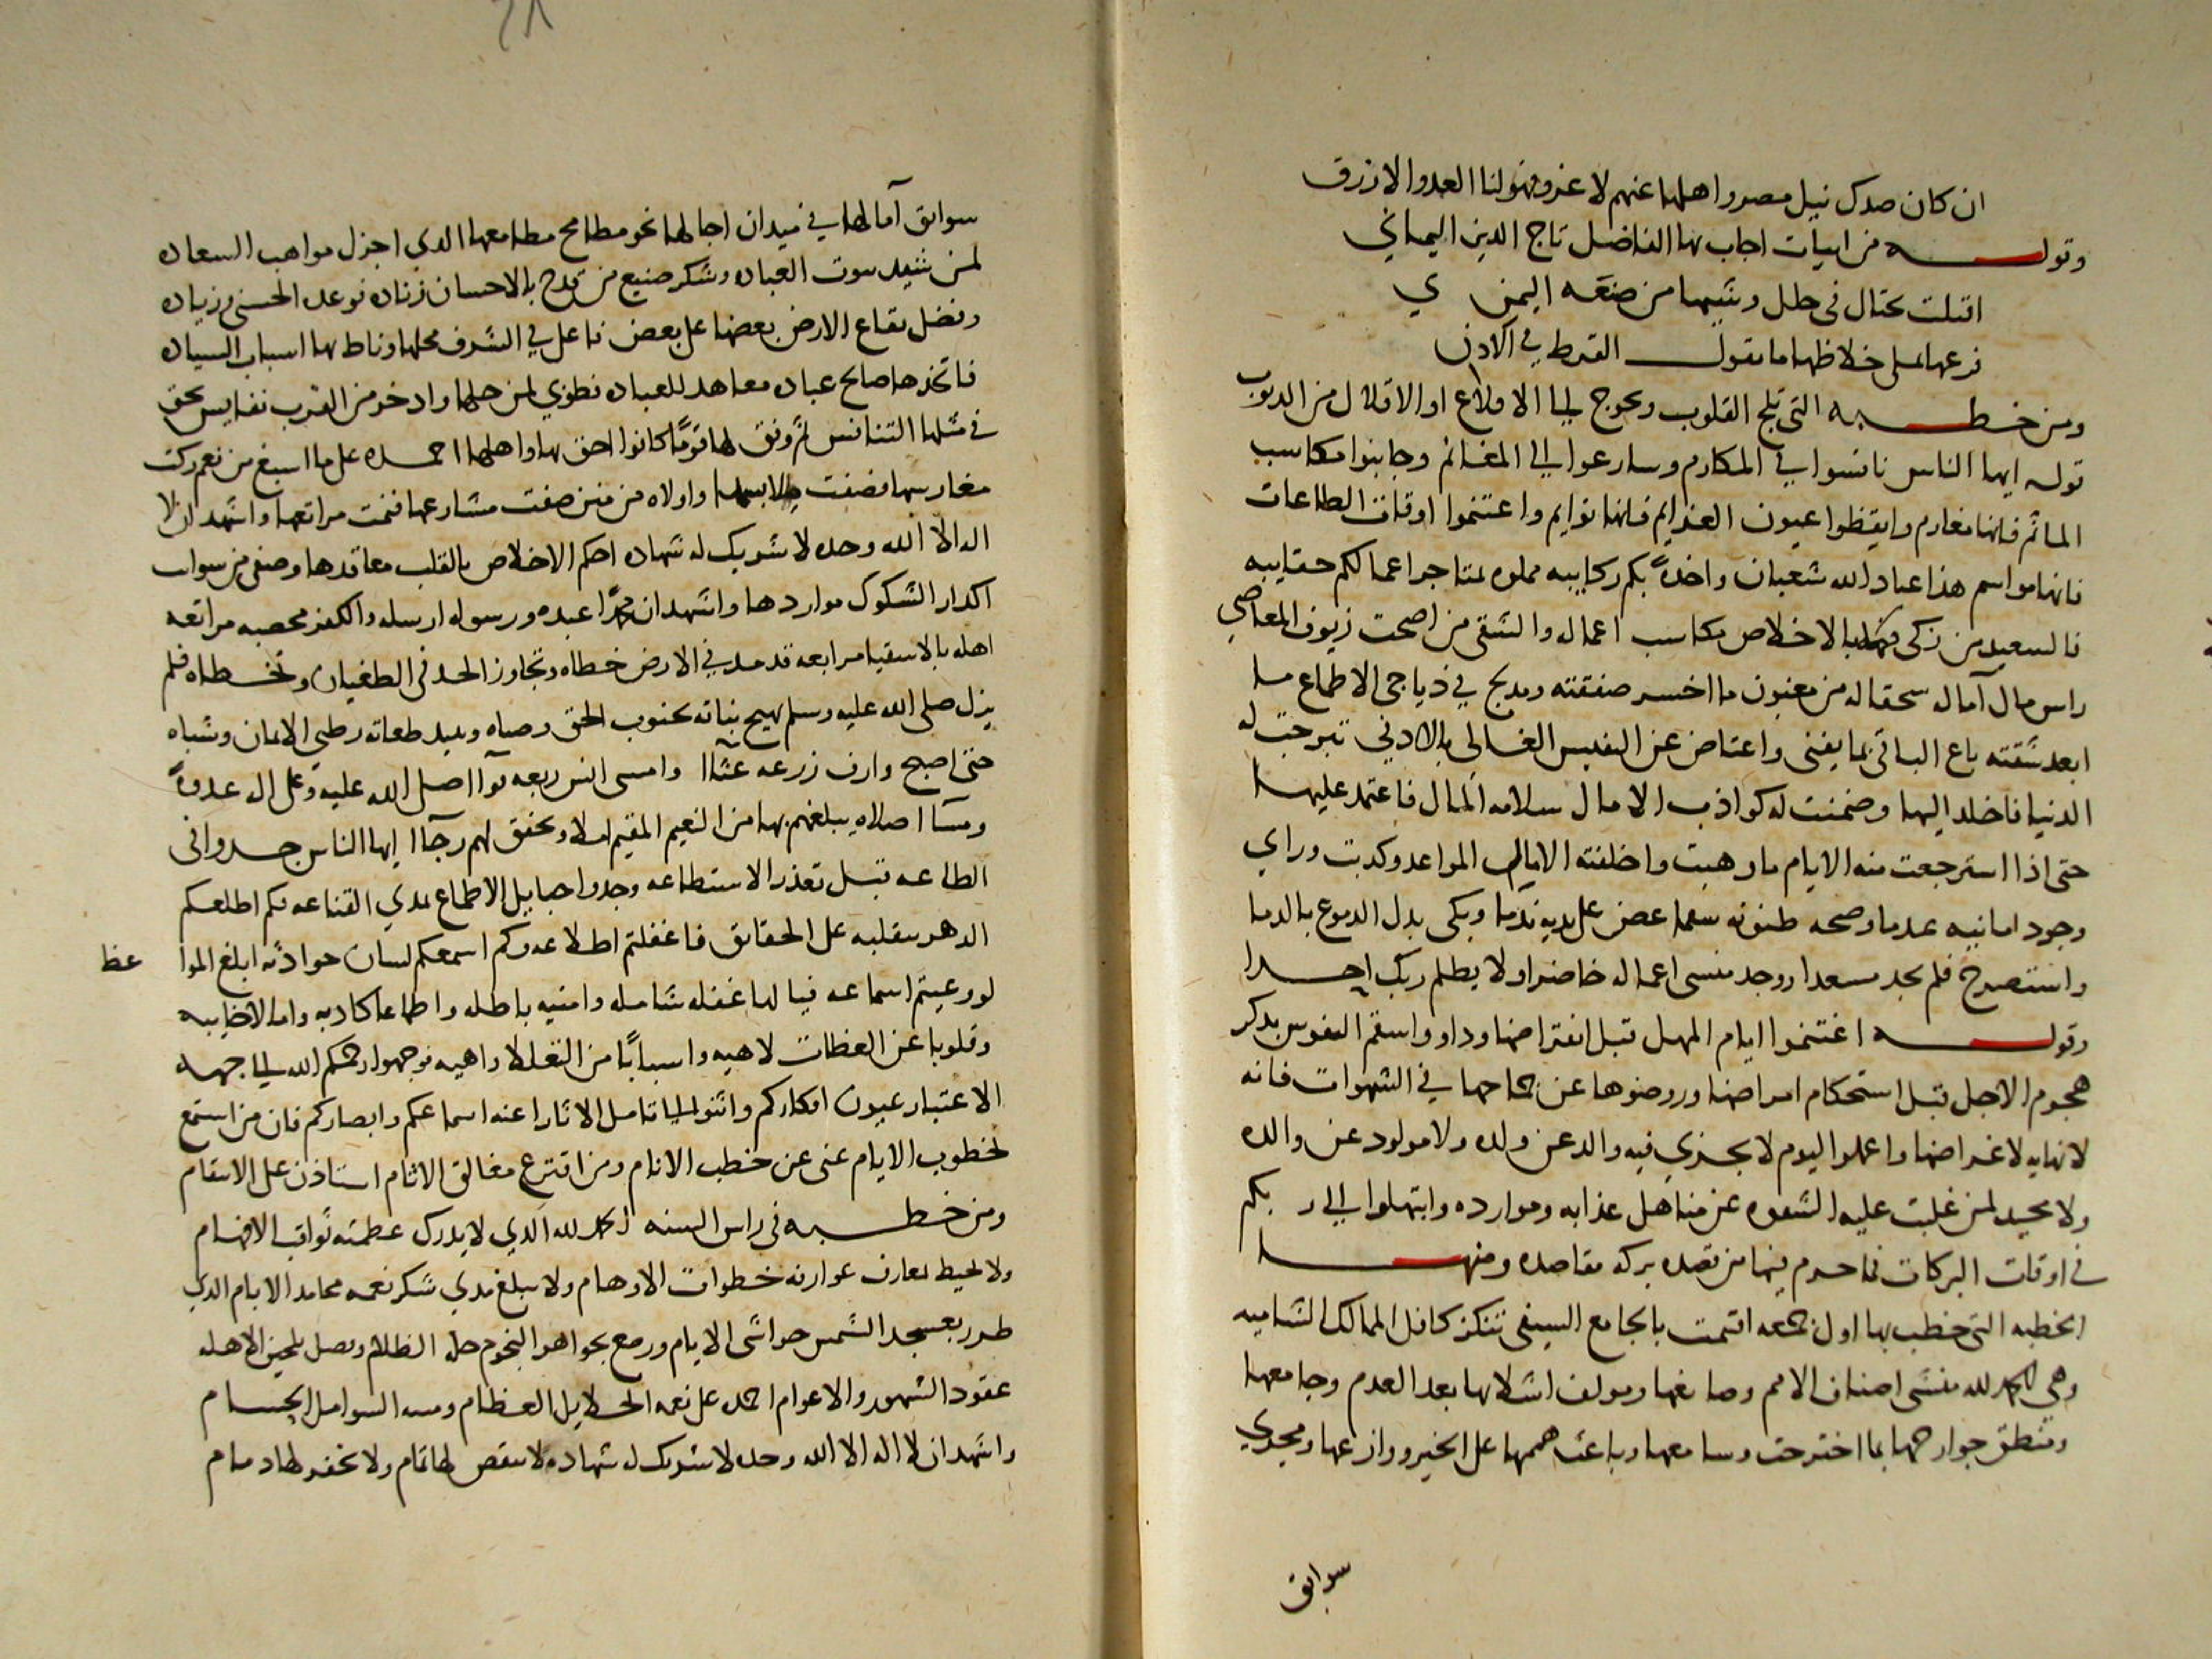 ان كان صدك نيل مصر واهلها عنهم لا غرو فهو لنا العدو الازرق
وقوله من ابيات اجاب بها الفاضل تاج الدين اليماني
اقبلت تختال في حلل وشيها من صنعه اليمن ي
فرعها يملي خلاخلها ما يقول القرط في الاذن
ومن خطبه التي تلج القلوب وتحوج الي الاقلاع او الاقلال من الذنوب
قوله ايها الناس نافسوا في المكارم وسارعوا الي المغانم وجانبوا مكاسب
الماثم فانها مغارم وايقظوا عيون العزايم فانها نوايم واغتنموا اوقات الطاعات
فانها مواسم هذا عباد الله شعبان واخذة بكم ركايبه مملوه بمتاجر اعمالكم حقايبه
فالسعيد من زكي فيه بالاخلاص مكاسب اعماله والشقي من اضحت زيوف المعاصي
راس مال آماله سحقا له من مغبون ما اخسر صفقته ومدلج في دياجي الاطماع ما
ابعد شقته باع الباقي بما يفني واعتاض عن النفيس الغالي بالادني تبرجت له
الدنيا فاخلد اليها وضمنت له كواذب الامال سلامه المال فاعتمد عليها
حتي اذا استرجعت منه الايام ما وهبت واخلفته الامال المواعد وكدبت وراي
وجود امانيه عدما وصحه ظنونه سقما عض علي يديه ندما وبكي بدل الدموع بالدما
واستصرخ فلم يجد مسعدا ووجد منسي اعماله حاضرا ولا يظلم ربك احدا
وقوله اغتنموا ايام المهل قبل انقراضها وداووا سقم النفوس بذكر
هجوم الاجل قبل استحكام امراضها وروضوها عن جماحها في الشهوات فانه
لا نهايه لاغراضها واعملوا ليوم لا يجزي فيه والد عن ولده ولا مولود عن والده
ولا محيد لمن غلبت عليه الشقوه عن مناهل عذابه وموارده وابتهلوا الي ربكم
في اوقات البركات فما حرم فيها من قصده بركه مقاصده ومنها
الخطبه التي خطب بها اول جمعه اقيمت بالجامع السيفي تنكز كافل الممالك الشاميه
وهي الحمد لله منشي اصناف الامم وصانعها ومولف اشلابها بعد العدم وجامعها
ومنطق جوارحها بما اخترحت وسامعها وباعث هممها علي الخير ووازعها ومجري
سوابق
سوابق آمالها في ميدان اجالها نحو مطامح مطامعها الذي اجزل مواهب السعاده
لمن شيد بيوت العباده وشكر صنيع من قدح بالاحسان زناده فوعد الحسني وزياده
وفضل بقاع الارض بعضها علي بعض فاعلي في الشرف محلها وناط بها اسباب السياده
فاتخذها صالح عباده معاهد للعباده فطوبي لمن حلها وادخر من القرب نفايس يحق
في مثلها التنافس ثم وفق لها قومًا كانوا احق بها واهلها احمده علي ما اسبغ من نعم زكت
مغارسها فضفت ملابسها واولاه من منن صفت مشارعها فنمت مراتعها واشهد ان لا
اله الا الله وحده لا شريك له شهاده احكم الاخلاص بالقلب معاقدها وصفي من شوايب
اكدار الشكوك مواردها واشهد ان محمدًا عبده ورسوله ارسله والكفر مخصبه مراتعه
اهله بالاشقيا مرابعه قد مد في الارض خطاه وتجاوز الحد في الطغيان وتخطاه فلم
يزل صلي الله عليه وسلم يهيج نباته بجنوب الحق وصباه ويبيد طغاته بظبي الايمان وشباه
حتي اصبح وارف زرعه غثآا وامسي انس ربعه قوآا صلي الله عليه وعلي اله غدوةً
ومسآا صلاه يبلغهم بها من النعيم المقيم املا ويحقق لهم رجآا ايها الناس جدوا في
الطاعه قبل تعذر الاستطاعه وجدوا حبايل الاطماع بمدي القناعه فكم اطلعكم
الدهر بتقلبه علي الحقايق فاغفلتم اطلاعه وكم اسمعكم لسان حوادثه ابلغ الموا عظ
لو وعيتم اسماعه فيا لها غفله شامله وامنيه باطله واطماعا كاذبه وامالا خايبه
وقلوبا عن العظات لاهيه واسبابًا من التعللا واهيه فوجهوا رحمكم الله الي جهه
الاعتبار عيون افكاركم واثنوا الي تامل الاثار اعنه اسماعكم وابصاركم فان من استمع
لخطوب الايام غني عن خطب الانام ومن اقترع مغالق الاثام استاذن علي الاسقام
ومن خطبه في راس السنه الحمد لله الذي لا يدرك عظمته ثواقب الافهام
ولا يحيط بمعارف عوارفه خطوات الاوهام ولا يبلغ مدي شكر نعمه محامد الانام الذي
طرز بعسجد الشمس حواشي الايام ورصع بجواهر النجوم حلة الظلام وفصل بلجين الاهله
عقود الشهور والاعوام احمده علي نعمه الجلايل العظام ومننه الشوامل الجسام
واشهد ان لا اله الا الله وحده لا شريك له شهادة لا ينقص لها تمام ولا يخفر لها دمام